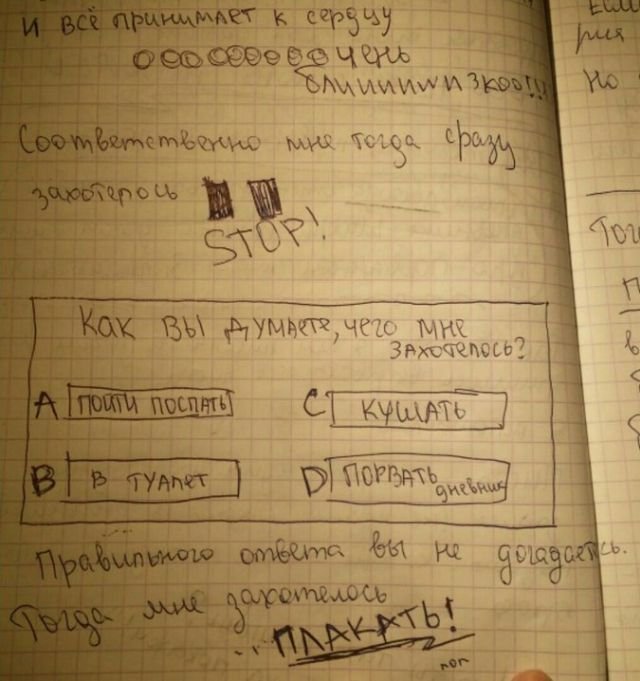 и всё принимает к сердцу
ооооооооочень
блииииизкоо!!!
Соответственно мне тогда сразу
захотелось
STOP!
Как вы думаете, чего мне
захотелось?
A пойти поспать
C кушать
B в туалет
D порвать
дневник
Правильного ответа вы не догадаетсь.
Тогда мне захотелось
... ПЛАКАТЬ!
Если
рия
но
Тог
П
в